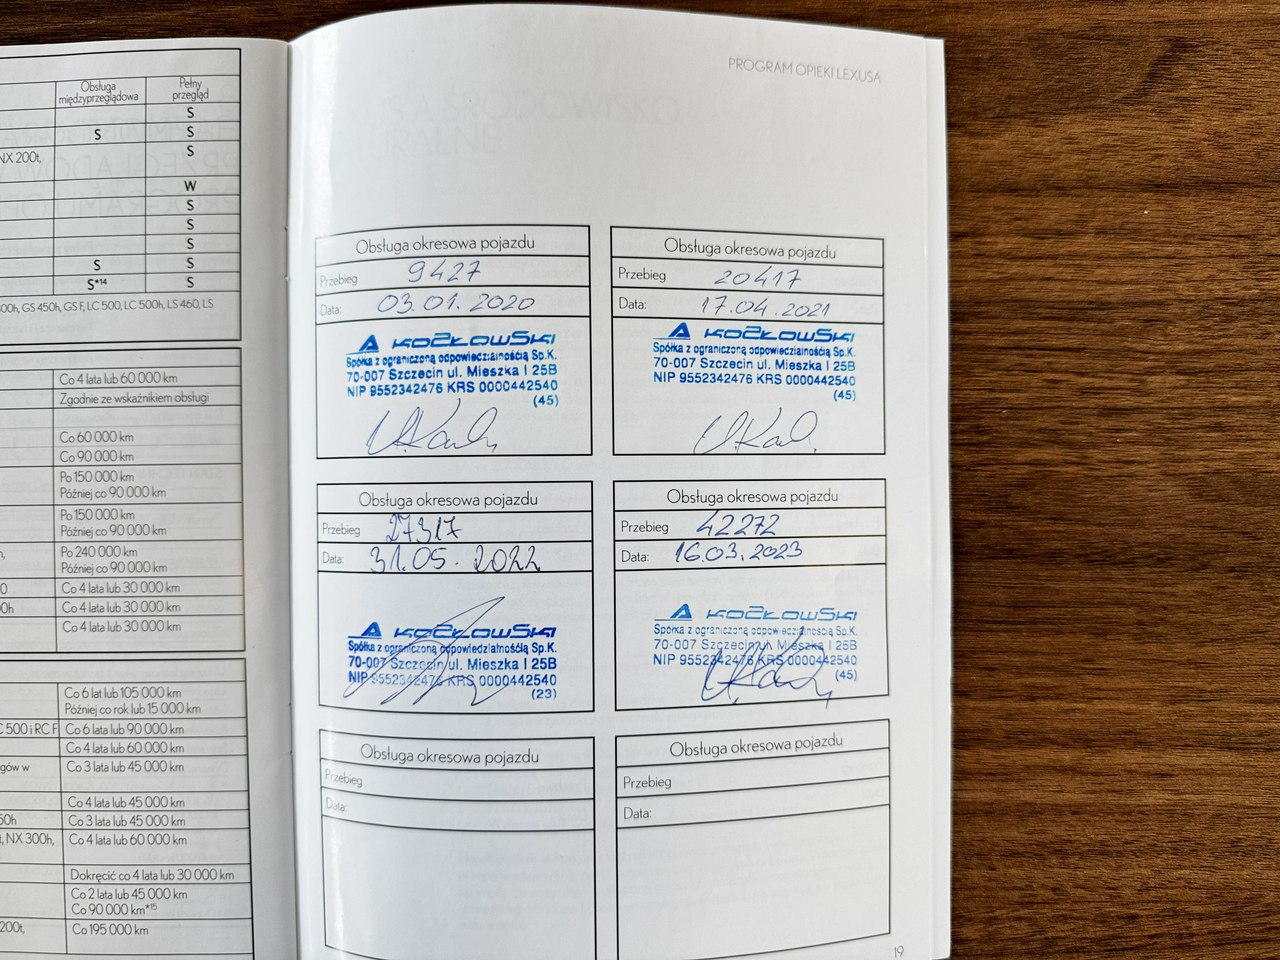 Obsługa międzyprzeglądowa
Pełny przegląd
S
S S
NX 200t, S
W
S
S
S
S S
S*14 S
00h, GS 450h, GS F, LC 500, LC 500h, LS 460, LS
Co 4 lata lub 60 000 km
Zgodnie ze wskaźnikiem obsługi
Co 60 000 km
Co 90 000 km
Po 150 000 km
Później co 90 000 km
Po 150 000 km
Później co 90 000 km
Po 240 000 km
Później co 90 000 km
0 Co 4 lata lub 30 000 km
00h Co 4 lata lub 30 000 km
Co 4 lata lub 30 000 km
Co 6 lat lub 105 000 km
Później co rok lub 15 000 km
C 500 i RC F Co 6 lata lub 90 000 km
Co 4 lata lub 60 000 km
gów w Co 3 lata lub 45 000 km
Co 4 lata lub 45 000 km
50h Co 3 lata lub 45 000 km
t, NX 300h, Co 4 lata lub 60 000 km
Dokręcić co 4 lata lub 30 000 km
Co 2 lata lub 45 000 km
Co 90 000 km*15
200t, Co 195 000 km
PROGRAM OPIEKI LEXUSA
Obsługa okresowa pojazdu
Przebieg 9427
Data: 03.01.2020
KOZŁOWSKI
Spółka z ograniczoną odpowiedzialnością Sp.K.
70-007 Szczecin ul. Mieszka I 25B
NIP 9552342476 KRS 0000442540
(45)
Obsługa okresowa pojazdu
Przebieg 20417
Data: 17.04.2021
KOZŁOWSKI
Spółka z ograniczoną odpowiedzialnością Sp.K.
70-007 Szczecin ul. Mieszka I 25B
NIP 9552342476 KRS 0000442540
(45)
Obsługa okresowa pojazdu
Przebieg 27317
Data: 31.05.2022
KOZŁOWSKI
Spółka z ograniczoną odpowiedzialnością Sp.K.
70-007 Szczecin ul. Mieszka I 25B
NIP 9552342476 KRS 0000442540
(23)
Obsługa okresowa pojazdu
Przebieg 42272
Data: 16.03.2023
KOZŁOWSKI
Spółka z ograniczoną odpowiedzialnością Sp.K.
70-007 Szczecin ul. Mieszka I 25B
NIP 9552342476 KRS 0000442540
(45)
Obsługa okresowa pojazdu
Przebieg
Data:
Obsługa okresowa pojazdu
Przebieg
Data:
19